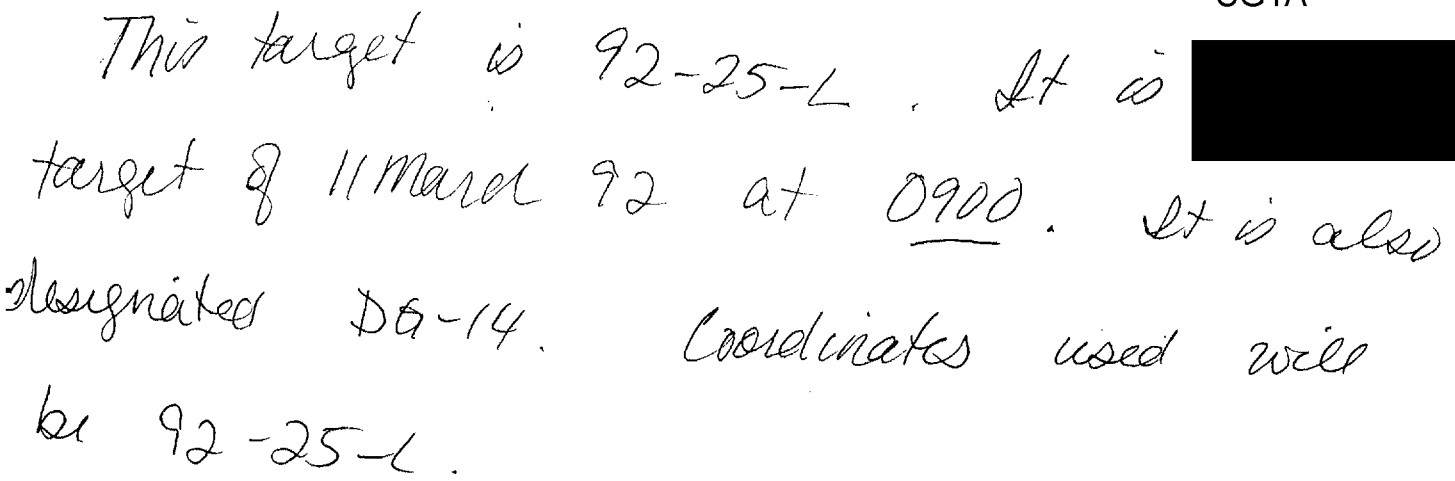 This target is 92-25-L. It is
target of 11 March 92 at 0900. It is also
designated DG-14. Coordinates used will
be 92-25-L.